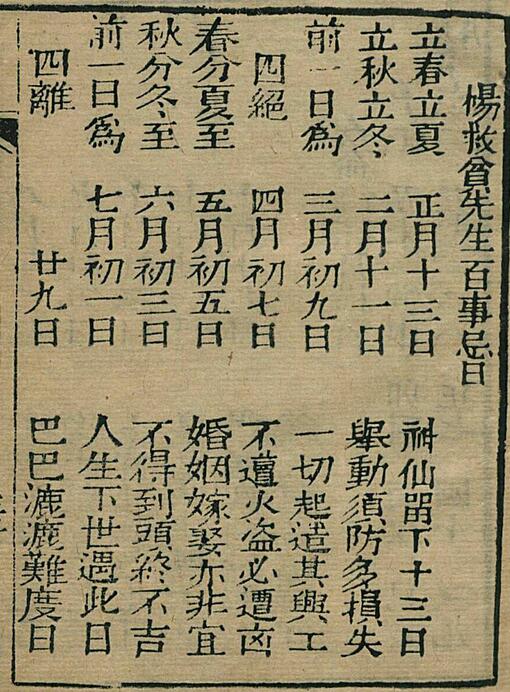 楊救貧先生百事忌日
立春立夏
立秋立冬
前一日爲
四絕
春分夏至
秋分冬至
前一日爲
四離
正月十三日
二月十一日
三月初九日
四月初七日
五月初五日
六月初三日
七月初一日
廿九日
神仙留下十三日
舉動須防多損失
一切起遣其興工
不遭火盜必遭凶
婚姻嫁娶亦非宜
不得到頭終不吉
人生下世遇此日
巴巴漉漉難度日